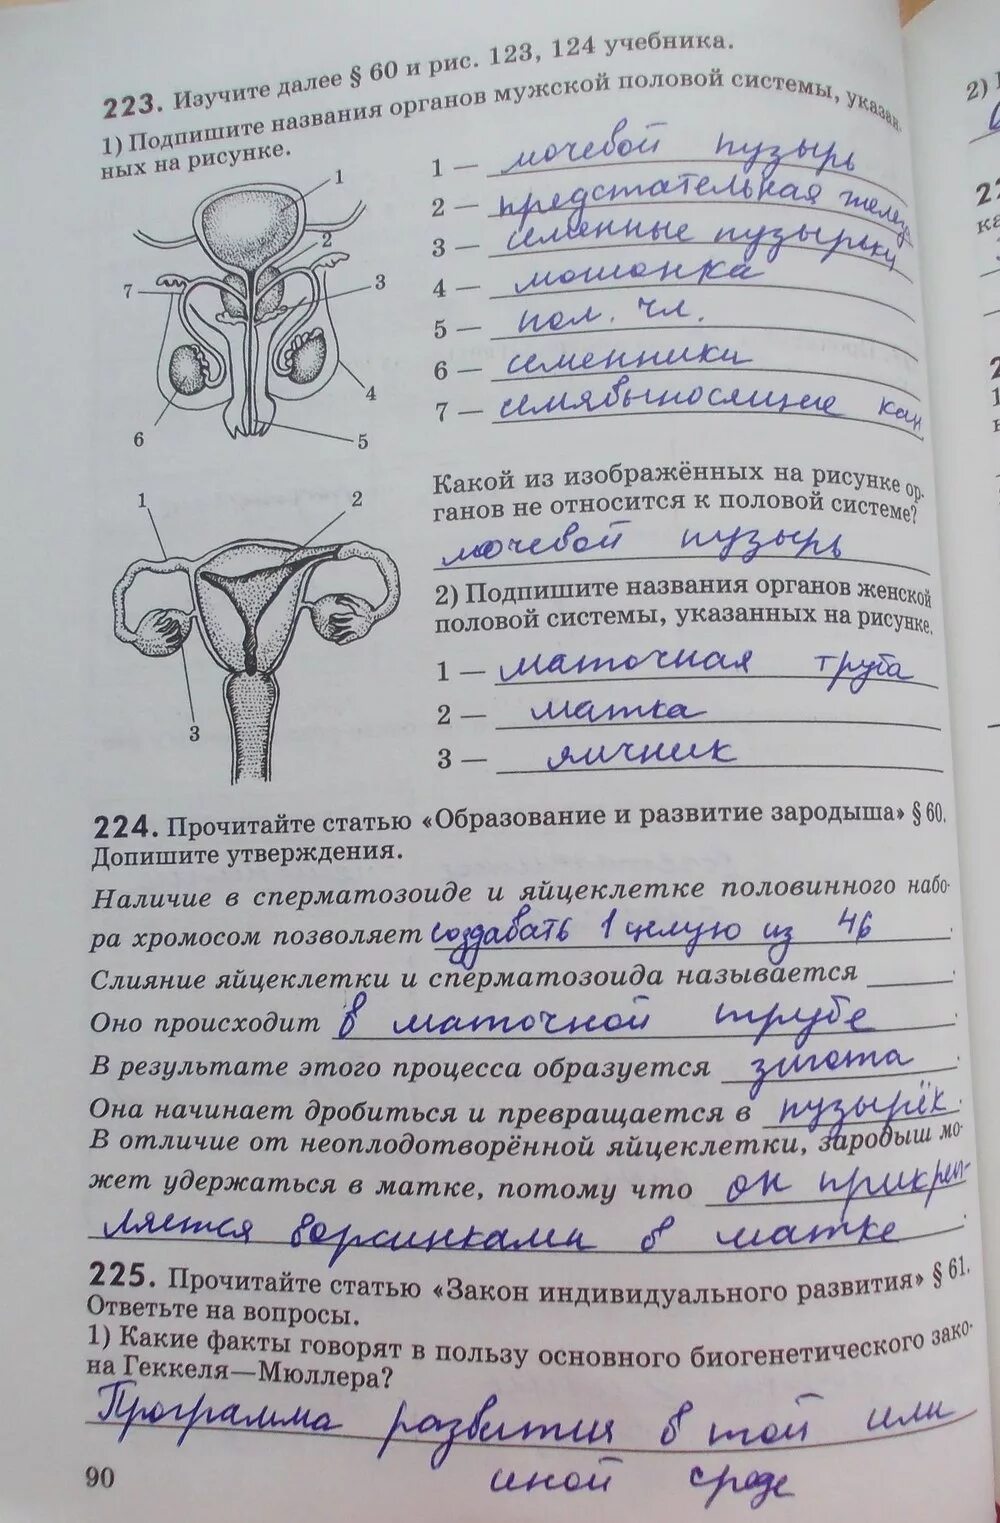 223. Изучите далее § 60 и рис. 123, 124 учебника.
1) Подпишите названия органов мужской половой системы, указан-
ных на рисунке.
1
2
3
7
4
6
5
1 — мочевой пузырь
2 — предстательная железа
3 — семенные пузырьки
4 — мошонка
5 — пол. чл.
6 — семенники
7 — семявыносящие кан
Какой из изображённых на рисунке ор-
ганов не относится к половой системе?
мочевой пузырь
1
2
3
2) Подпишите названия органов женской
половой системы, указанных на рисунке.
1 — маточная труба
2 — матка
3 — яичник
224. Прочитайте статью «Образование и развитие зародыша» § 60.
Допишите утверждения.
Наличие в сперматозоиде и яйцеклетке половинного набо-
ра хромосом позволяет создавать 1 целую из 46.
Слияние яйцеклетки и сперматозоида называется ______.
Оно происходит в маточной трубе.
В результате этого процесса образуется зигота.
Она начинает дробиться и превращается в пузырёк.
В отличие от неоплодотворённой яйцеклетки, зародыш мо-
жет удержаться в матке, потому что он прикреп-
ляется ворсинками в матке.
225. Прочитайте статью «Закон индивидуального развития» § 61.
Ответьте на вопросы.
1) Какие факты говорят в пользу основного биогенетического зако-
на Геккеля—Мюллера?
Программа развития в той или
иной среде
90
2)